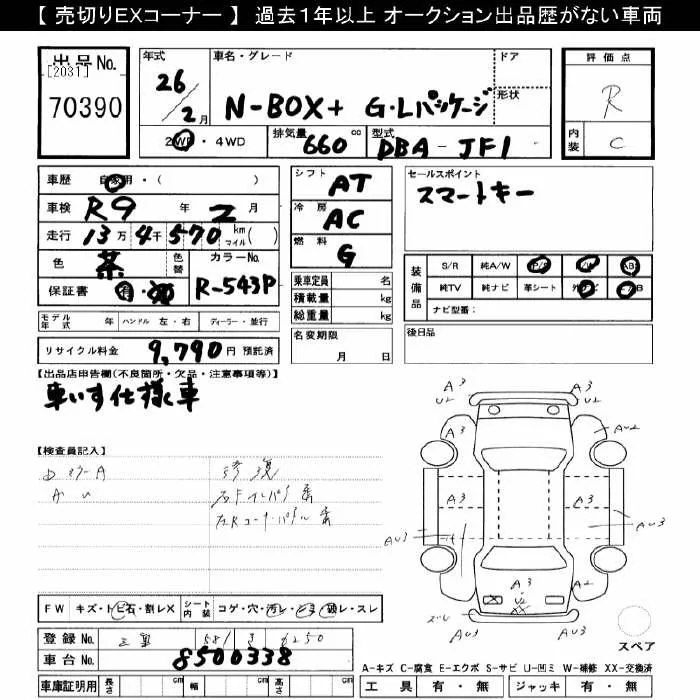 【 売切りEXコーナー 】 過去1年以上 オークション出品歴がない車両
出品No.
[2031]
70390
年式
26年
2月
車名・グレード
N-BOX+ G・Lパッケージ
ドア
形状
2WD・4WD
排気量 660 cc
型式 DBA-JF1
評価点
R
内装 C
車歴 自家用・( )
車検 R9 年 2 月
走行 13万4千570 km マイル( )
色 茶 色替
カラーNo. R-543P
保証書 有・無
モデル年式 年 ハンドル 左・右 ディーラー・並行
リサイクル料金 9,790 円 預託済
シフト AT
冷房 AC
燃料 G
乗車定員 名
積載量 kg
総重量 kg
名変期限 月 日
セールスポイント
スマートキー
装備品
S/R 純A/W P/S P/W AB
純TV 純ナビ 革シート 外ナビ
ナビ型番:
後日品
【出品店申告欄(不良箇所・欠品・注意事項等)】
車いす仕様車
【検査員記入】
修復
A3
U2
A3
AU2
A3
A3
AU3
AU3
A3
U2
XX
A2
AU3
AU3
スペア
FW キズ・トビ石・割レX
シート内装 コゲ・穴・汚レ・破レ・スレ
登録No. 三重 581
車台No. 8500338
車庫証明用 長さ 幅 高さ
A-キズ C-腐食 E-エクボ S-サビ U-凹ミ W-補修 XX-交換済
工具 有・無 ジャッキ 有・無